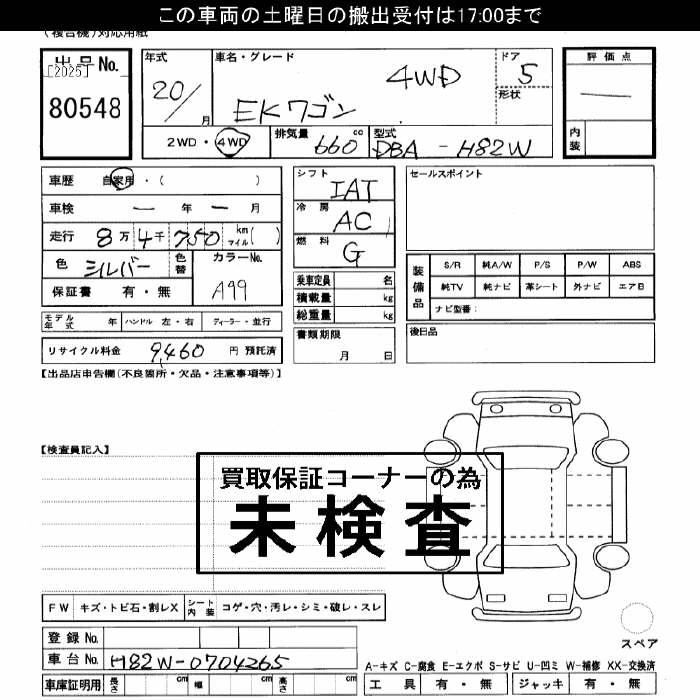 この車両の土曜日の搬出受付は17:00まで
(複合機)対応用紙
出品No.
[2025]
80548
年式
20/
月
車名・グレード
4WD
EKワゴン
ドア
5
形状
評価点
—
内装
2WD・4WD
排気量
660
cc
型式
DBA - H82W
車歴 自家用・( )
車検 — 年 — 月
走行 8万4千750 km マイル( )
色 シルバー 色替
カラーNo.
A99
保証書 有・無
モデル年式 年 ハンドル 左・右 ディーラー・並行
リサイクル料金 9,460 円 預託済
シフト
IAT
冷房
AC
燃料
G
乗車定員 名
積載量 kg
総重量 kg
書類期限
月 日
セールスポイント
装備品
S/R 純A/W P/S P/W ABS
純TV 純ナビ 革シート 外ナビ エアB
ナビ型番:
後日品
【出品店申告欄(不良箇所・欠品・注意事項等)】
【検査員記入】
買取保証コーナーの為
未検査
FW キズ・トビ石・割レX シート内装 コゲ・穴・汚レ・シミ・破レ・スレ
スペア
登録No.
車台No. H82W-0704265
車庫証明用 長さ cm 幅 cm 高さ cm
A-キズ C-腐食 E-エクボ S-サビ U-凹ミ W-補修 XX-交換済
工具 有・無 ジャッキ 有・無